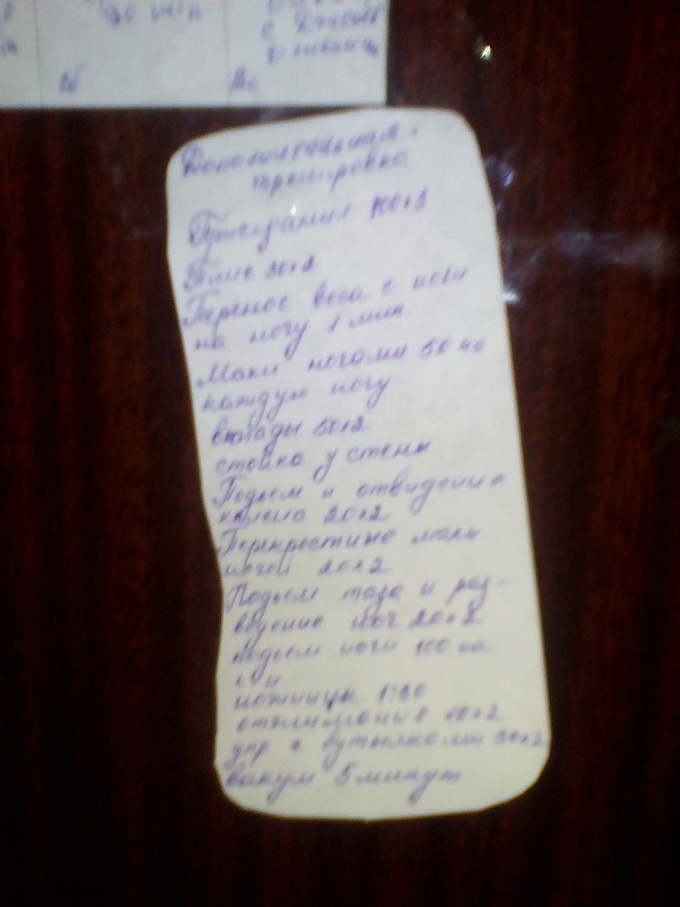 30 мин
с Джоб
Сб
Вс
Дополнительная
тренировка
Приседания 100х3
Плие 20х2
Перенос веса с ноги
на ногу 1 мин
Махи ногами 50 на
каждую ногу
выпады 50х2
стойка у стены
Подъем и отведение
колена 20х2
Перекрестные махи
ногой 20х2
Подъем таза и раз-
ведение ног 20х2
подъем ноги 100 на
ножницы 1:30
отжимания 10х2
упр с бутылками 30х2
вакум 5 минут